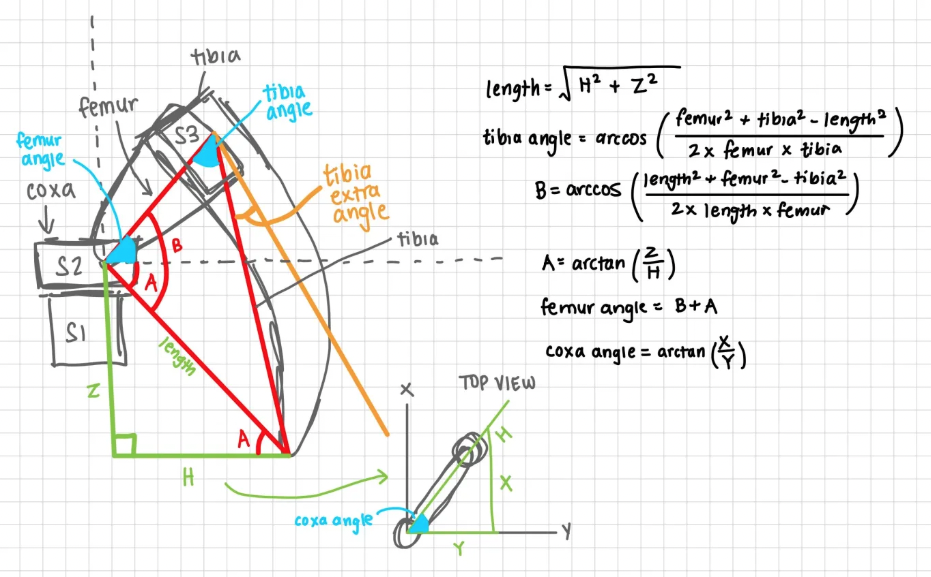 tibia
femur
tibia
angle
S3
femur
angle
coxa
tibia
extra
angle
B
tibia
S2
A
S1
length
Z
A
H
length = √H² + Z²
tibia angle = arccos (femur² + tibia² - length² / 2 x femur x tibia)
B = arccos (length² + femur² - tibia² / 2 x length x femur)
A = arctan (Z/H)
femur angle = B + A
coxa angle = arctan (X/Y)
TOP VIEW
X
H
X
coxa angle
Y
Y